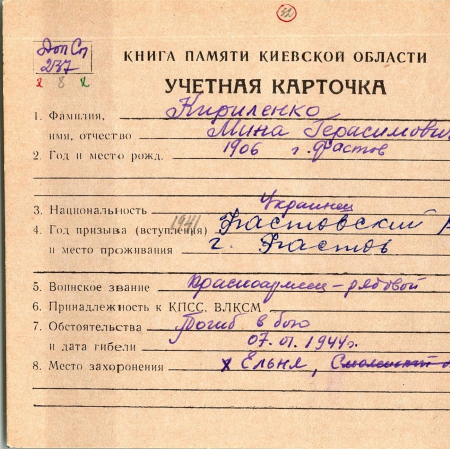 32
Доп Сп
237
2 8 2
КНИГА ПАМЯТИ КИЕВСКОЙ ОБЛАСТИ
УЧЕТНАЯ КАРТОЧКА
1. Фамилия, Кириленко
имя, отчество Мина Герасимович
2. Год и место рожд. 1906 г. Фастов
3. Национальность Украинец
4. Год призыва (вступления) 1941 Фастовский Р
и место проживания г. Фастов
5. Воинское звание красноармеец - рядовой
6. Принадлежность к КПСС, ВЛКСМ
7. Обстоятельства Погиб в бою
и дата гибели 07.01.1944г.
8. Место захоронения х Ельня, Смоленской